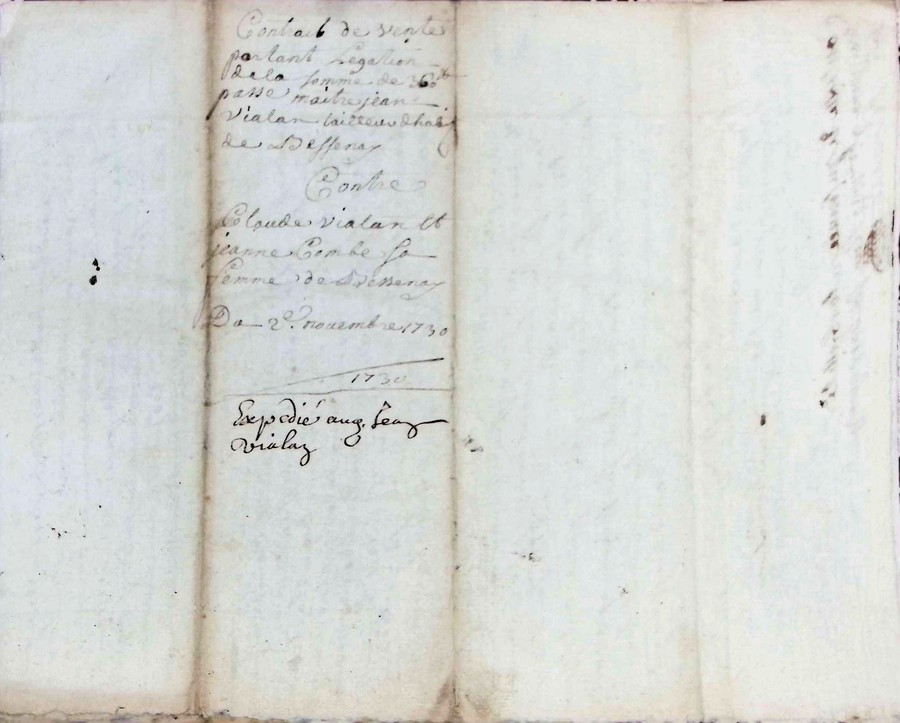 Contract de vente
portant Legation
de la somme de 360 lt
passé maitre jean
vialan tailleur d'habi
de Bessenay
Contre
Claude vialan Et
jeanne Combe sa
femme de Bessenay
Du 2e. novembre 1730
1730
Expedié aud. Jean
vialan